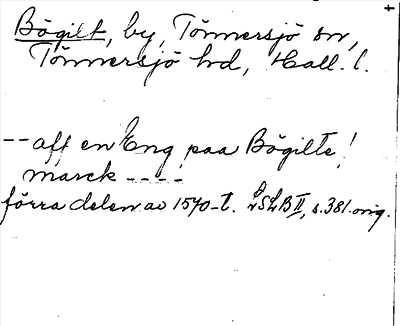 Bögilt, by, Tönnersjö sn,
Tönnersjö hd, Hall. l.
-- aff en Eng paa Bögilte!
marck ----
förra delen av 1570-t. SLB II, s. 381. orig.